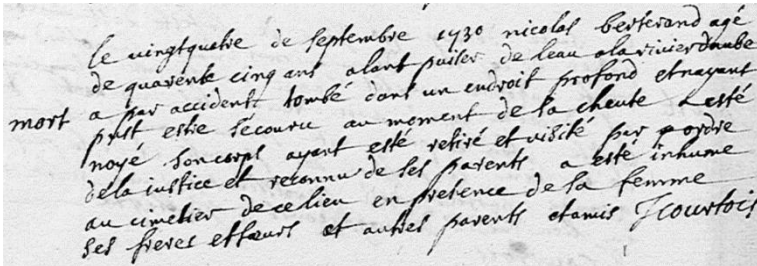 le vingtquatre de septembre 1730 nicolas berterand agé
de quarente cinq ans alant puiser de leau ala rivier daube
mort a par accident tombé dans un endroit profond et nayant
pust estre sécouru au moment de sa cheute a esté
noyé son corps ayant esté retiré et visité par ordre
dela iustice et reconnu de ses parents a esté inhume
au cimetier de ce lieu en presence de sa femme
ses freres et sœurs et autres parents et amis JCourtois